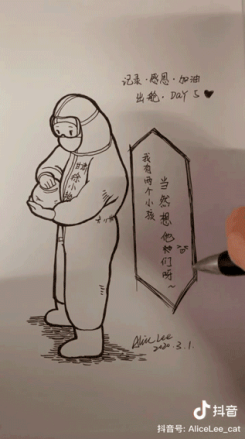 记录·感恩·加油
出舱·DAY 5
我有两个小孩
当然想他们呀~
Alice Lee
2020.3.1.
抖音
抖音号: AliceLee_cat